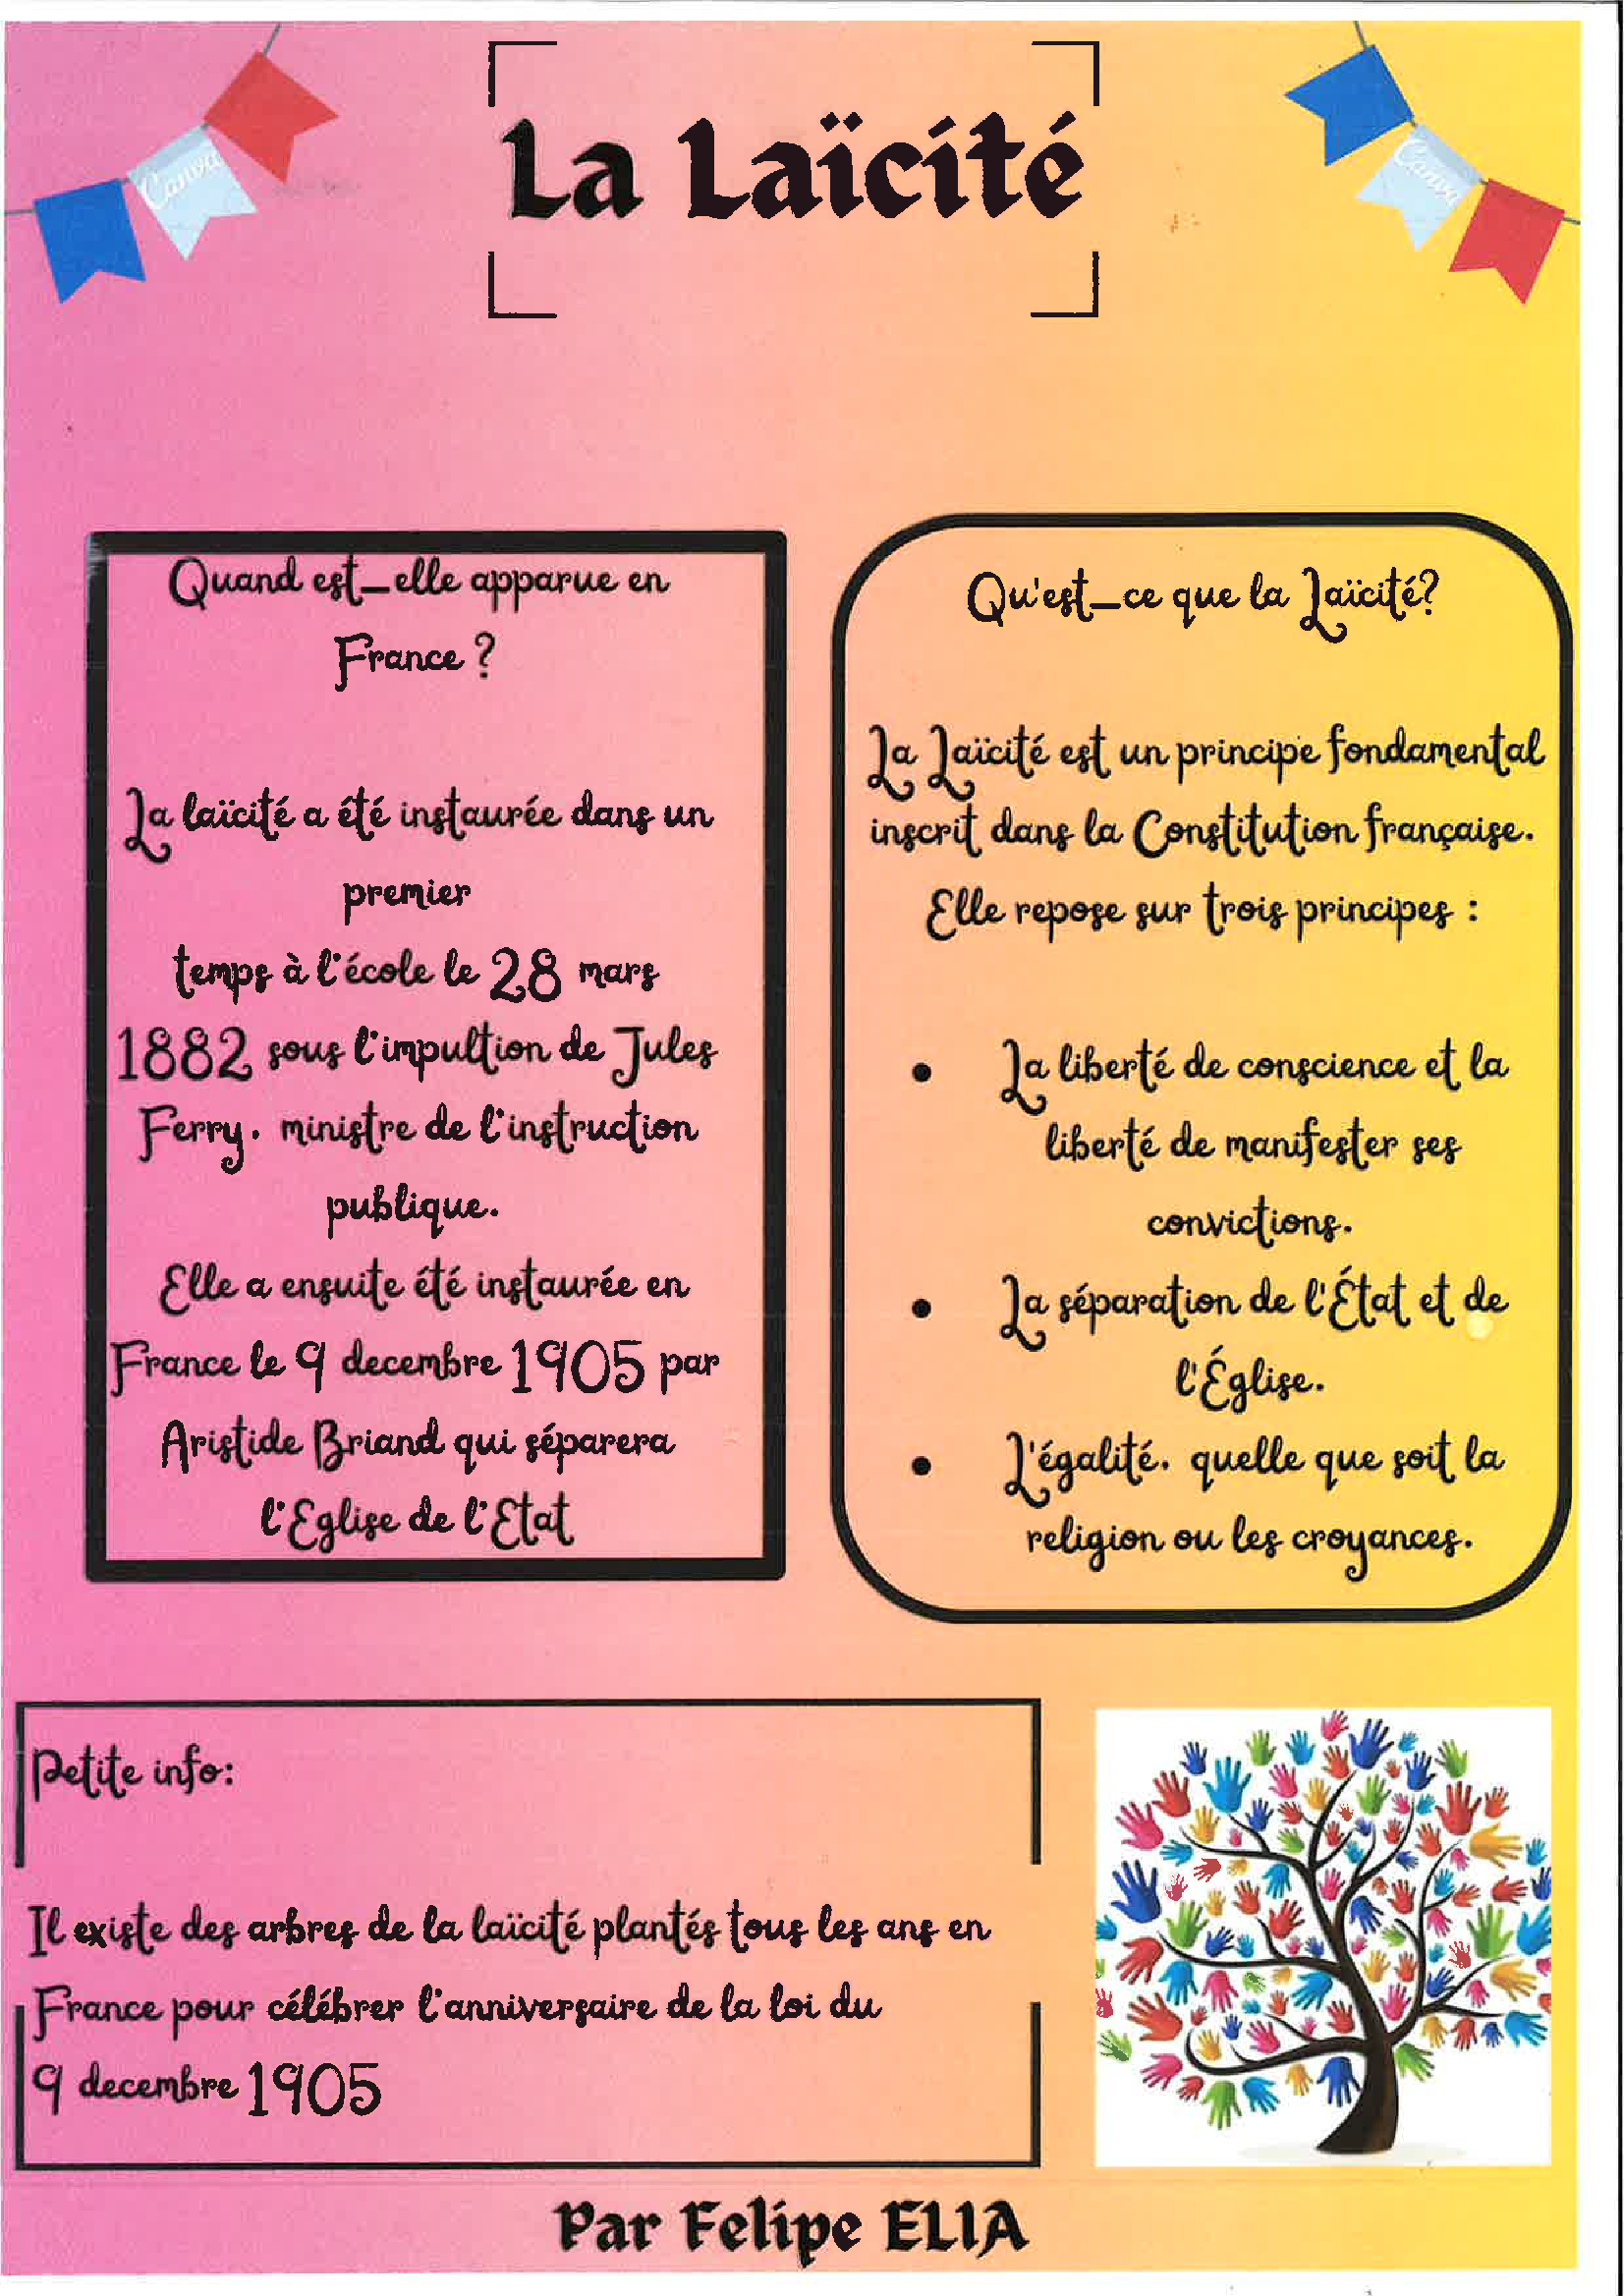 La Laïcité
Canva
Canva
Quand est_elle apparue en
France ?
La laïcité a été instaurée dans un
premier
temps à l'école le 28 mars
1882 sous l'impultion de Jules
Ferry, ministre de l'instruction
publique.
Elle a ensuite été instaurée en
France le 9 decembre 1905 par
Aristide Briand qui séparera
l'Eglise de l'Etat
Qu'est_ce que la Laïcité?
La Laïcité est un principe fondamental
inscrit dans la Constitution française.
Elle repose sur trois principes :
• La liberté de conscience et la
liberté de manifester ses
convictions.
• La séparation de l'État et de
l'Église.
• L'égalité, quelle que soit la
religion ou les croyances.
Petite info:
Il existe des arbres de la laïcité plantés tous les ans en
France pour célébrer l'anniversaire de la loi du
9 decembre 1905
Par Felipe ELIA